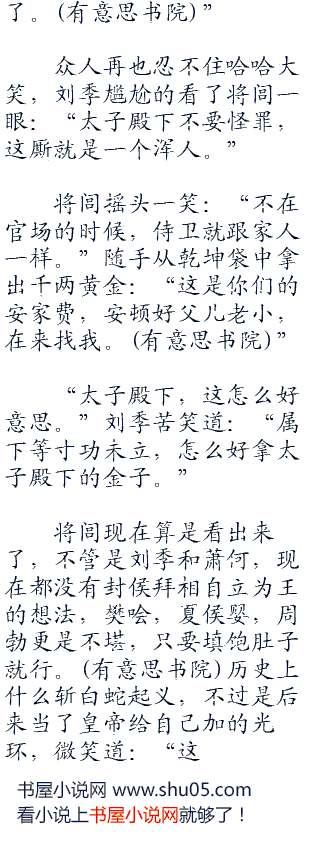 了。(有意思书院)”
众人再也忍不住哈哈大
笑，刘季尴尬的看了将闾一
眼：“太子殿下不要怪罪，
这厮就是一个浑人。”
将闾摇头一笑：“不在
官场的时候，侍卫就跟家人
一样。”随手从乾坤袋中拿
出千两黄金：“这是你们的
安家费，安顿好父儿老小，
在来找我。(有意思书院)”
“太子殿下，这怎么好
意思。”刘季苦笑道：“属
下等寸功未立，怎么好拿太
子殿下的金子。”
将闾现在算是看出来
了，不管是刘季和萧何，现
在都没有封侯拜相自立为王
的想法，樊哙，夏侯婴，周
勃更是不堪，只要填饱肚子
就行。(有意思书院)历史上
什么斩白蛇起义，不过是后
来当了皇帝给自己加的光
环，微笑道：“这
书屋小说网 www.shu05.com
看小说上书屋小说网就够了！